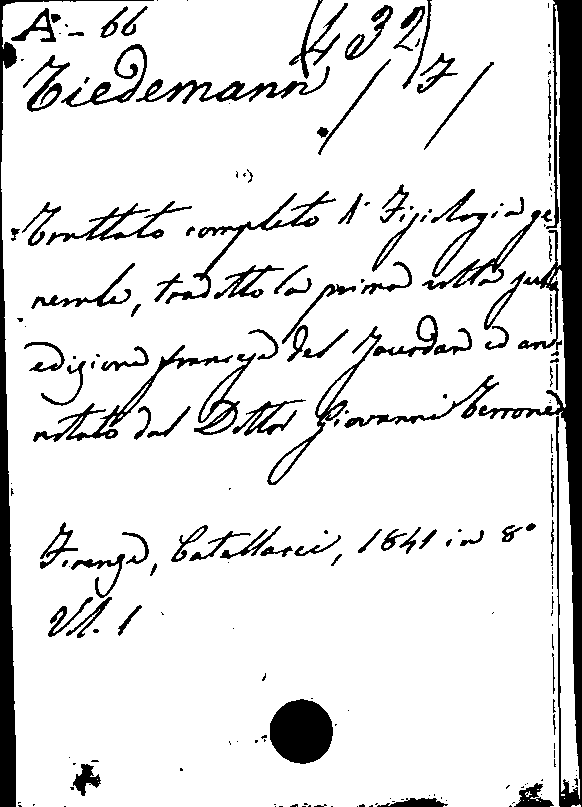 A - 66 (432)
Tiedemann / F /
Trattato completo di Fisiologia ge-
nerale, tradotto la prima volta sulla
edizione francese del Jourdan ed an-
notato dal Dottor Giovanni
Firenze, Batelli, 1841 in 8°
Vol. 1